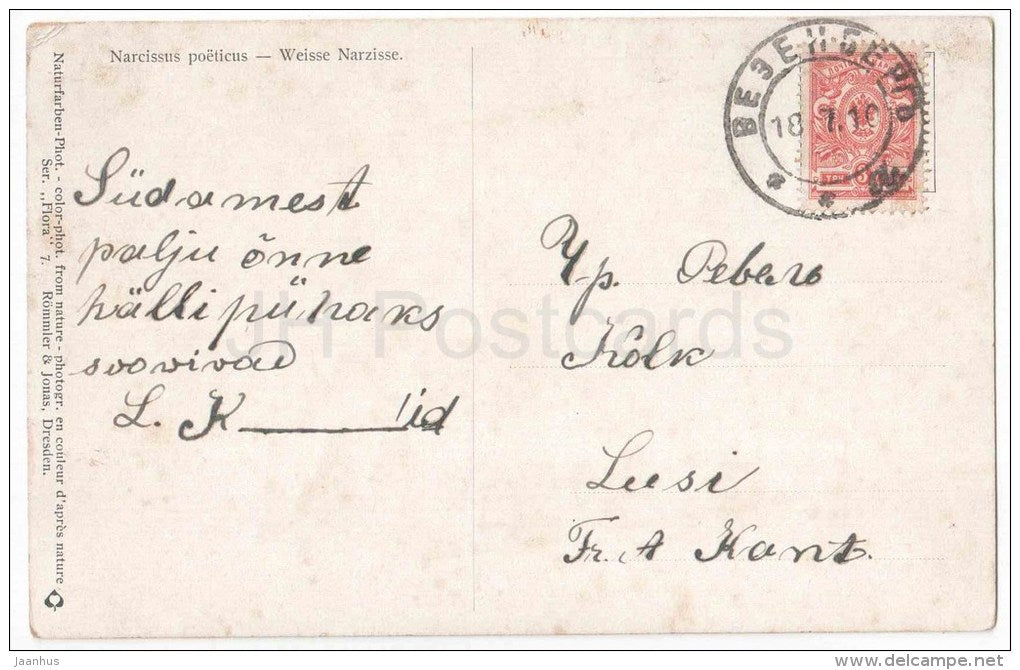 Narcissus poëticus — Weisse Narzisse.
Südamest
palju õnne
hälli pühaks
soovivad
L. K______'id
Naturfarben-Phot. - color-phot. from nature - photogr. en couleur d'après nature
Ser. „Flora" 7. Römmler & Jonas, Dresden.
ВЕЗЕНБЕРГЪ
18 7.10
ТРИ
Чр. Ревель
Kolk
Lusi
Fr. A Kant.
JH Postcards
jaanhus
delcampe.net